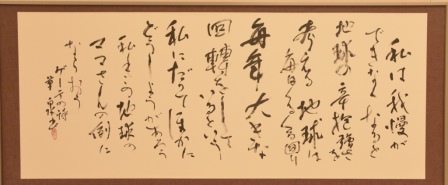 私は我慢が
できなくなると
地球の辛抱強さを
考える地球は
毎日くるくる回り
毎年大きな
回轉をして
いるという
私にだってほかに
どうしようがあろう
私もこの地球の
ママさんの例に
ならおう